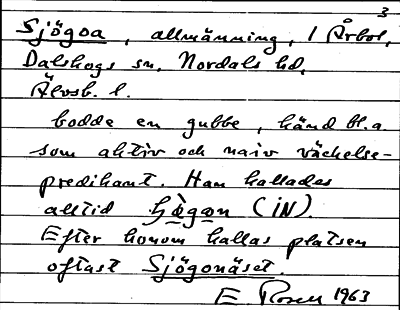 3
Sjögoa, allmänning, i Årbol,
Dalskogs sn, Nordals hd,
Älvsb. l.
bodde en gubbe, känd bl.a.
som aktiv och naiv väckelse-
predikant. Han kallades
alltid (IN).
Efter honom kallas platsen
oftast Sjögonäset.
E Rosen 1963